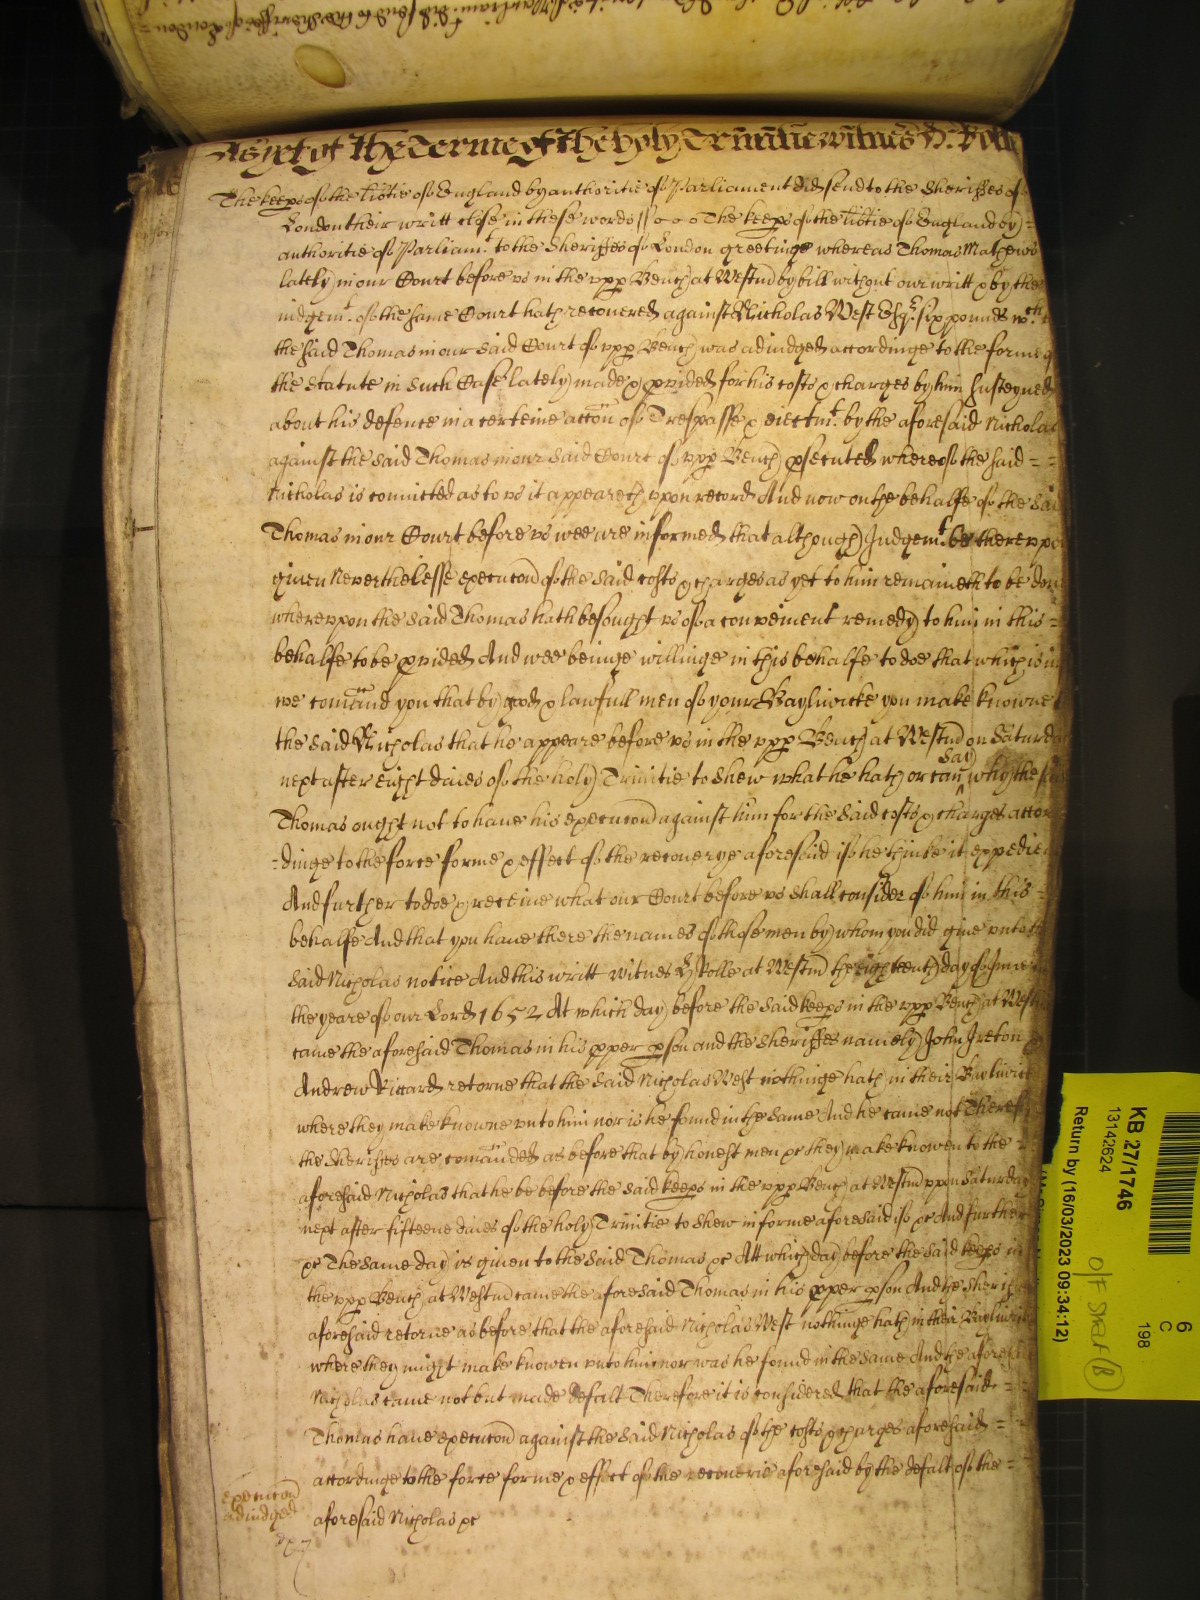 As yet of the Terme of the holy Trinitie witnes H. Rolle
The keeps of the lib̃tie of England by authoritie of Parliament did send to the Sheriffes of
London their writt close in these words // o o o The keeps of the lib̃tie of England by =
authoritie of Parliamt. to the Sheriffes of London greetinge whereas Thomas Mathewes
lately in our Court before us in the upp Bench at Westm̃ by bill without our writt & by the
iudgemt. of the same Court hath recovered against Nicholas West Esqr. six pounds wch.
the said Thomas in our said Court of upp Bench was adiudged accordinge to the forme of
the statute in such Case lately made & pvided for his costs & charges by him susteyned
about his defence in a certeine acc̃on of Trespasse & eiectmt. by the aforesaid Nicholas
against the said Thomas in our said Court of upp Bench psecuted whereof the said = =
Nicholas is convicted as to us it appeareth uppon record And now on the behalfe of the said
Thomas in our Court before us wee are informed that although Judgemt. be thereuppon
given Neverthelesse execuc̃on of the said costs & charges as yet to him remaineth to be don
whereuppon the said Thomas hath besought us of a convenient remedy to him in this =
behalfe to be pvided And wee beinge willinge in this behalfe to doe that which is iu
we com̃aund you that by good & lawfull men of your Baylywicke you make knowne
the said Nicholas that he appeare before us in the upp Bench at Westm̃ on Saturday
next after eight daies of the holy Trinitie to shew what he hath or can say why the said
Thomas ought not to have his execuc̃on against him for the said costs & charges accor
=dinge to the force forme & effect of the recoverye aforesaid if he thinke it expedie
And further to doe & receive what our Court before us shall consider of him in this =
behalfe And that you have there the names of those men by whom you did give unto
said Nicholas notice And this writt witnes H Rolle at Westm̃ the eighteenth day of June
the yeare of our Lord 1652 At which day before the said keeps in the upp Bench at Westm̃
came the aforesaid Thomas in his pper pson and the Sheriffes namely John Ireton
Andrew Riccard retorne that the said Nicholas West nothinge hath in their Bayliwick
where they make knowne unto him nor is he found in the same And he came not Theref
the Sheriffes are com̃aunded as before that by honest men &c they make knowen to the =
aforesaid Nicholas that he be before the said keeps in the upp Bench at Westm̃ uppon Saturday
next after fifteene daies of the holy Trinitie to shew in forme aforesaid if &c And further
&c The same day is given to the said Thomas &c Att which day before the said keeps in
the upp Bench at Westm̃ came the aforesaid Thomas in his pper pson And the Sheriffes
aforesaid retorne as before that the aforesaid Nicholas West nothinge hath in their Bayliwick
where they might make knowen unto him nor was he found in the same And the aforesaid
Nicholas came not but made defalt Therefore it is considered that the aforesaid = =
Thomas have execuc̃on against the said Nicholas of the costs & charges aforesaid =
accordinge to the force forme & effect of the recoverie aforesaid by the defalt of the =
execuc̃on
adiudged
aforesaid Nicholas &c
KB 27/1746
13142624
Return by (16/03/2023 09:34:12)
6
C
198